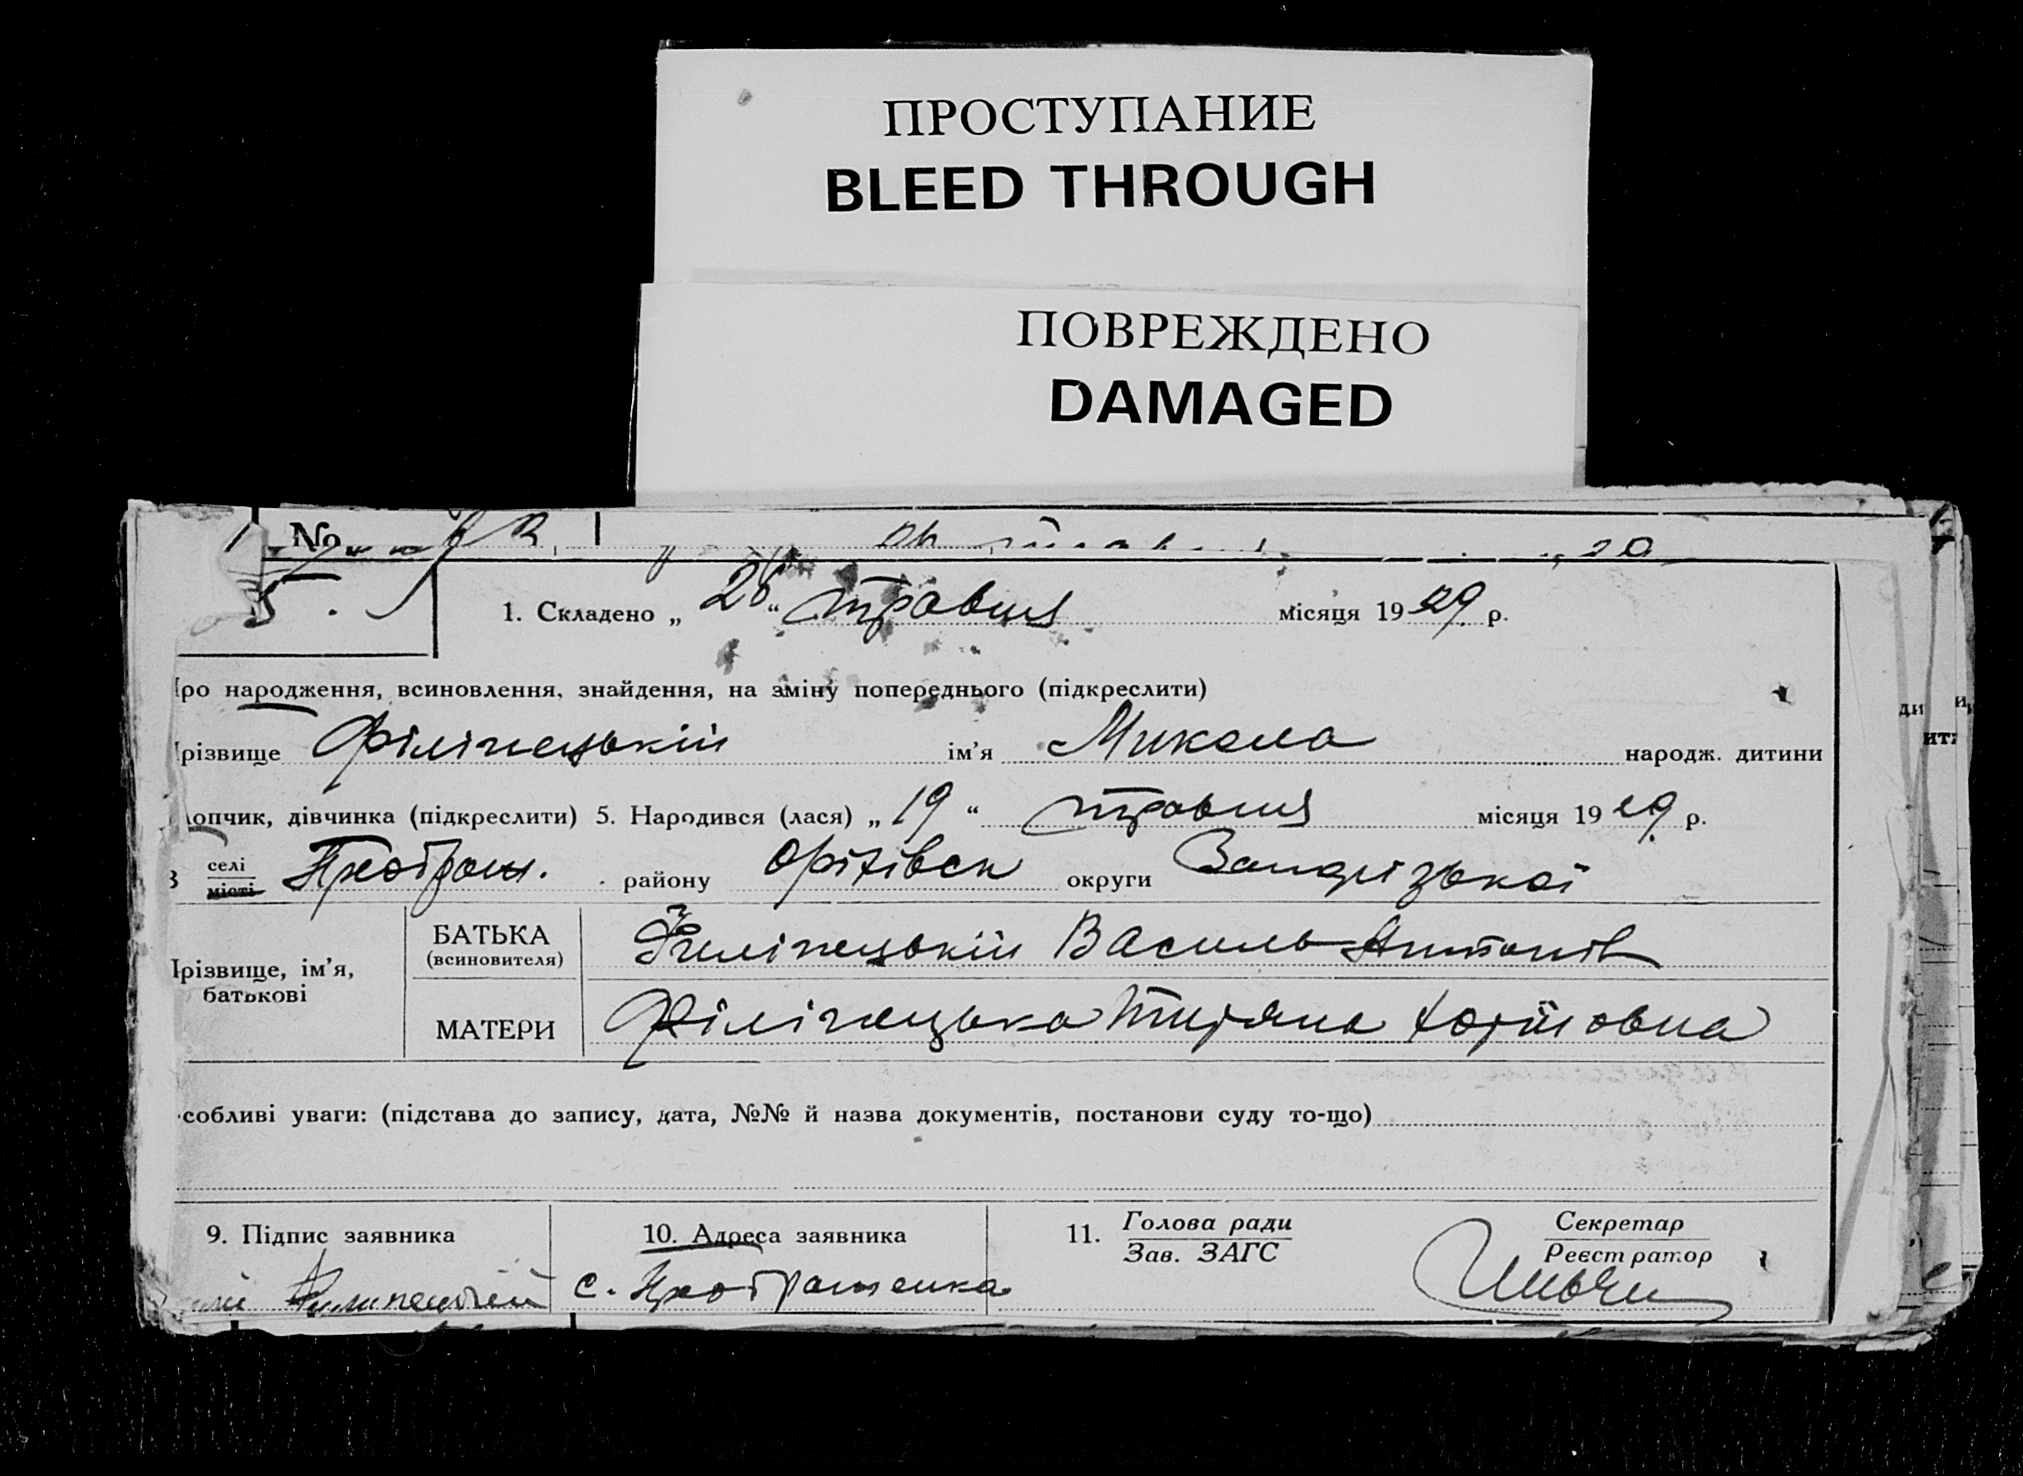 ПРОСТУПАНИЕ
BLEED THROUGH
ПОВРЕЖДЕНО
DAMAGED
No
1. Складено „ 26 “ травня місяця 19 29 р.
ро народження, всиновлення, знайдення, на зміну попереднього (підкреслити)
різвище Філіпецький ім’я Микола народж. дитини
лопчик, дівчинка (підкреслити) 5. Народився (лася) „ 19 “ травня місяця 19 29 р.
в селі
місті Преображ. району Оріхівськ округи Запорізької
Прізвище, ім’я,
батькові
БАТЬКА
(всиновителя)
Филіпецький Василь Антонів
МАТЕРИ
Філіпецька
собливі уваги: (підстава до запису, дата, №№ й назва документів, постанови суду то-що)
9. Підпис заявника 10. Адреса заявника 11. Голова ради
Зав. ЗАГС
Секретар
Реєстратор
Филипецкий с. Преображенка